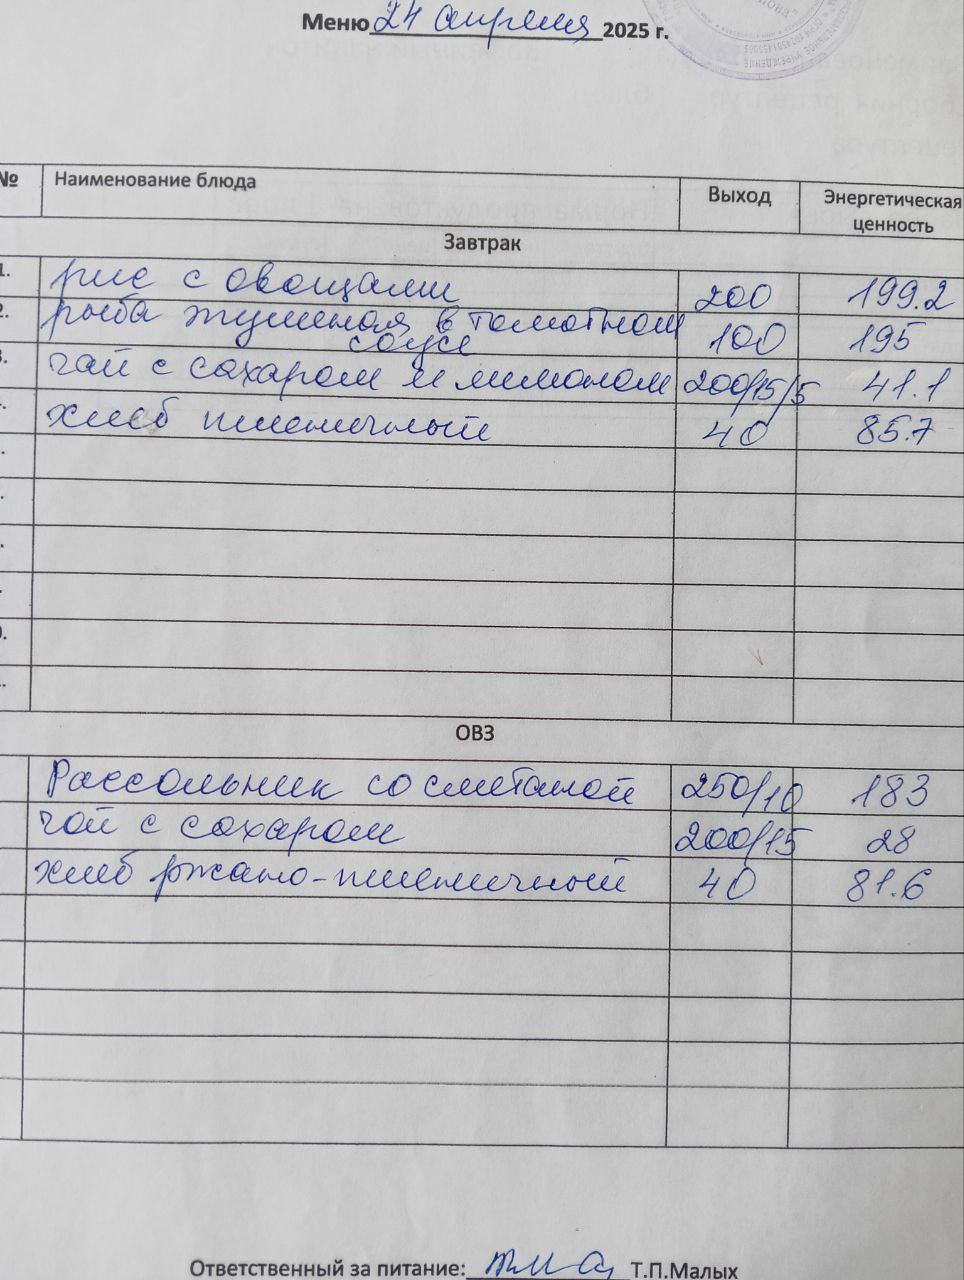 Меню 24 апреля 2025 г.
№ Наименование блюда Выход Энергетическая ценность
Завтрак
1. рис с овощами 200 199.2
2. рыба тушеная в томатном соусе 100 195
3. чай с сахаром и лимоном 200/15/5 41.1
хлеб пшеничный 40 85.7
ОВЗ
Рассольник со сметаной 250/10 183
чай с сахаром 200/15 28
хлеб ржано-пшеничный 40 81.6
Ответственный за питание: Т.П.Малых